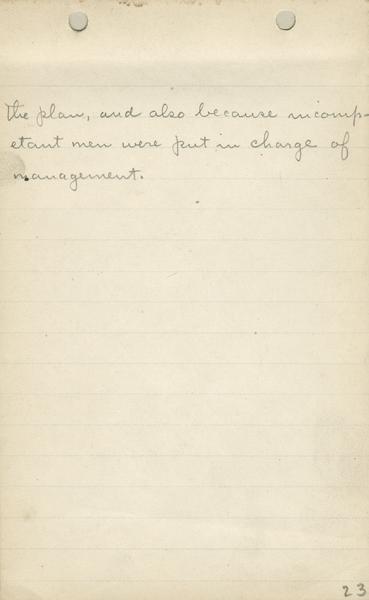 the plan, and also because incomp-
etant men were put in charge of
management.
23